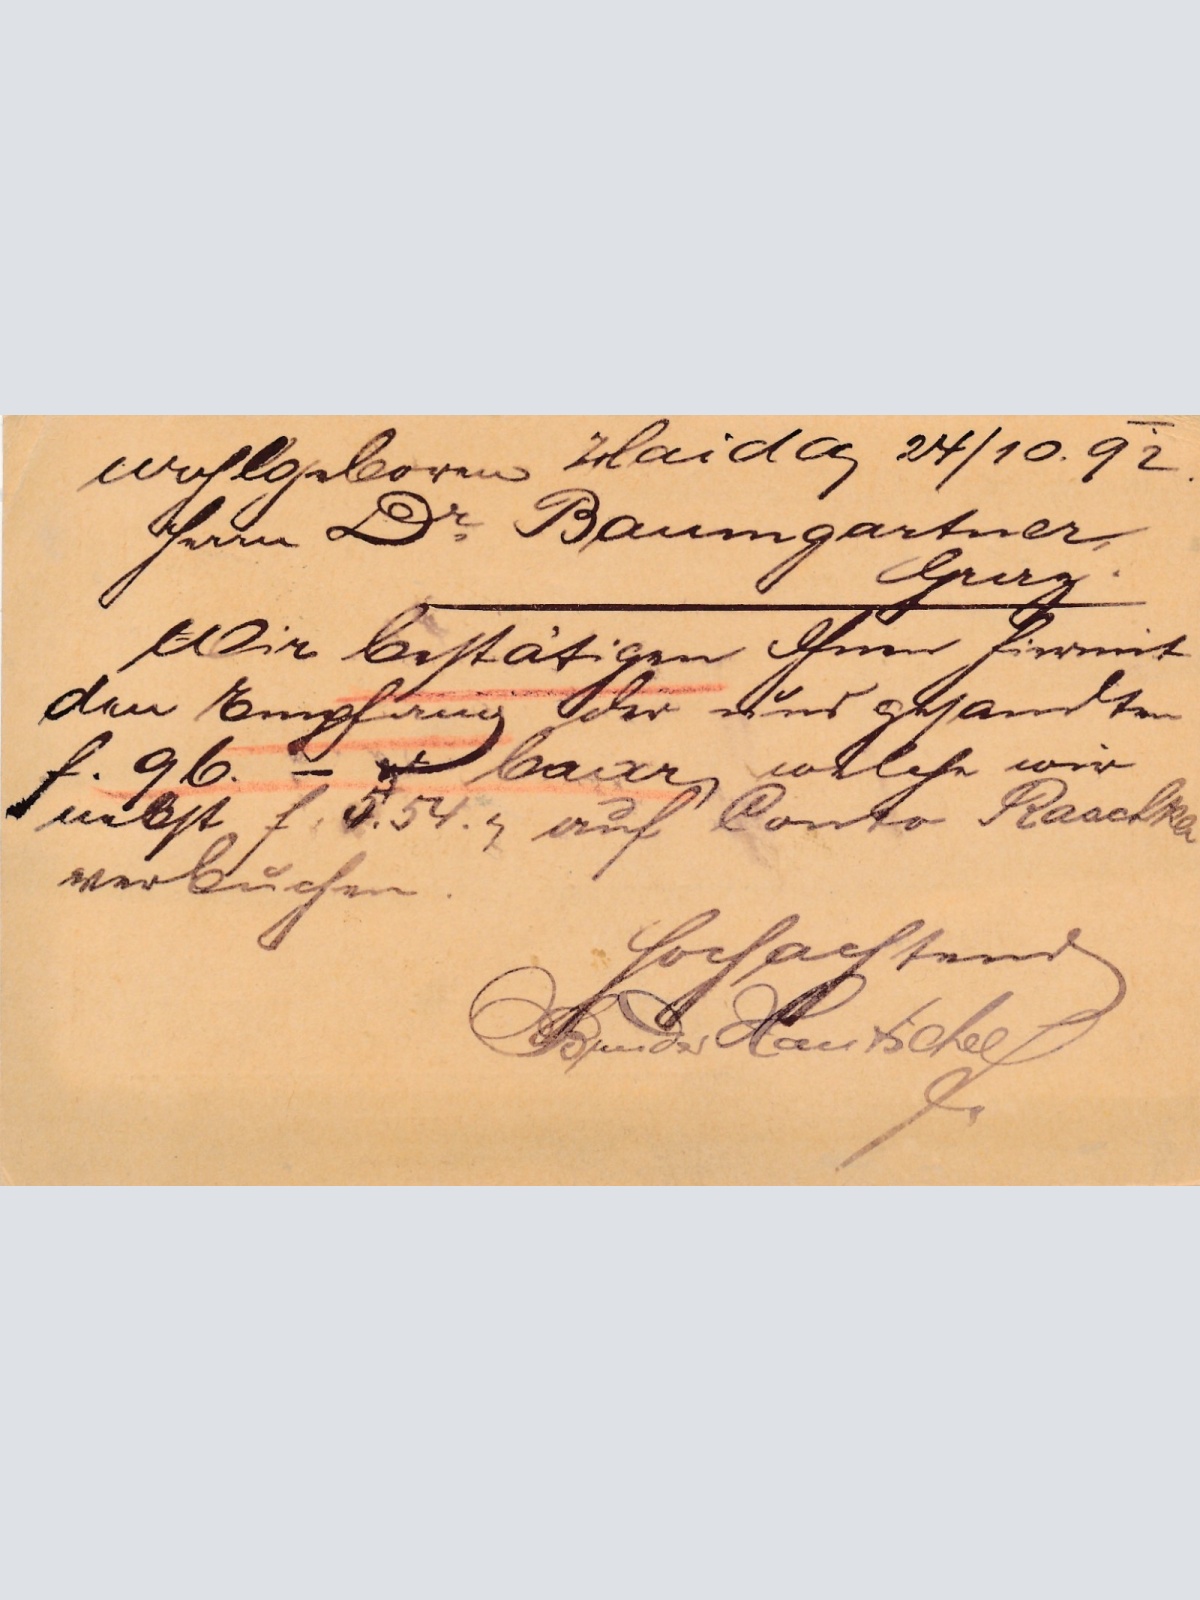 Wohlgeboren Haida, 24/10. 92.
Herrn Dr. Baumgartner,
Graz.
Wir bestätigen Ihnen hiermit
den Empfang der uns gesandten
f. 96. – baar, welche wir
nebst f. 5.54. auf Conto Raschka
verbuchen.
Hochachtend
Hantschel